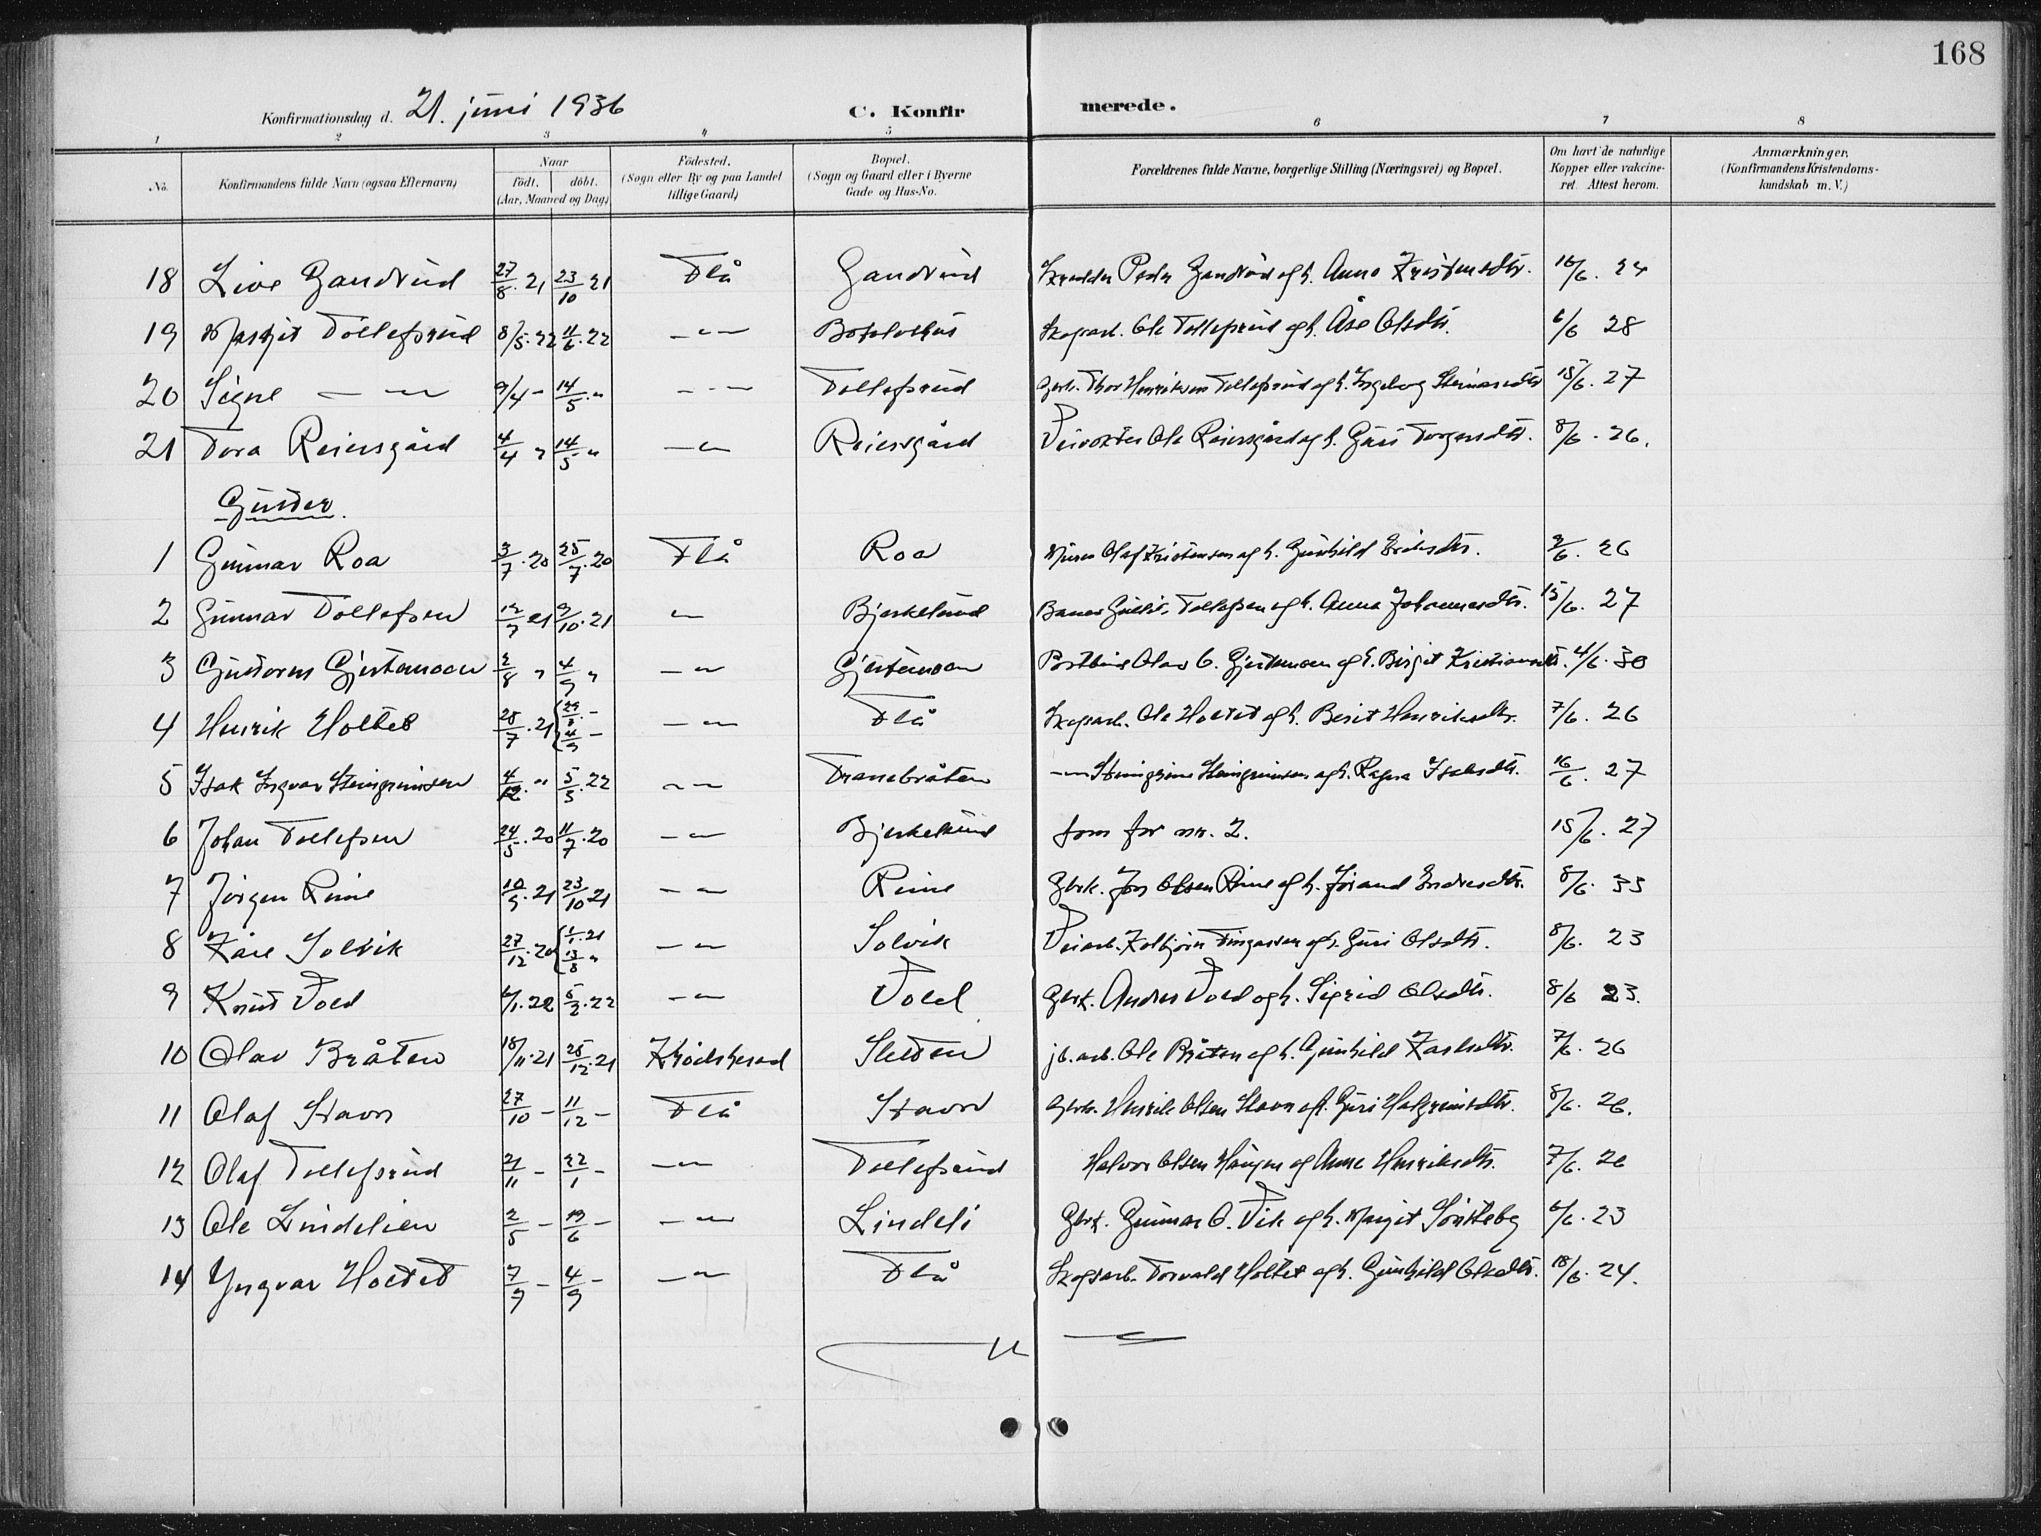 168
Konfirmationsdag d. 21. juni 1936 C. Konfirmerede.
1 2 3 4 5 6 7 8
No. Konfirmandens fulde Navn (ogsaa Efternavn) Naar födt. döbt. (Aar, Maaned og Dag) Födested. (Sogn eller By og paa Landet tillige Gaard) Bopæl. (Sogn og Gaard eller i Byerne Gade og Hus-No. Forældrenes fulde Navne, borgerlige Stilling (Næringsvei) og Bopæl. Om havt de naturlige Kopper eller vakcineret. Attest herom. Anmærkninger. (Konfirmandens Kristendomskundskab m. V.)
18 Live Gandrud 27/8. 21 23/10 21 Flå Gandrud Skredder Peder Gandrud og h. Anne Kristensdtr. 16/6. 24
19 Margit Tollefsrud 8/5. 22 11/6. 22 — " — Skogsarb. Ole Tollefsrud og h. Åse Olsdtr. 6/6 28
20 Signe — " — 9/4 - 14/5. " — " — Tollefsrud Gbr. Thor Henriksen Tollefsrud og h. Ingeborg Steinarsdtr 15/6. 27
21 Tora Reiersgård 4/4 " 14/5 " — " — Reiersgård Veivokter Ole Reiersgård og h. Guri Torgersdtr. 8/6. 26.
Gutter.
1 Gunnar Roa 3/7. 20 25/7. 20 Flå Roa Murer Olaf Kristensen og h. Gunhild Eriksdtr. 2/6. 26
2 Gunnar Tollefsen 12/7 21 9/10. 21 — " Bjerkelund Baner Gullik Tollefsen og h. Anna Johannesdtr. 15/6. 27
3 Guttorm Gjestemoen 2/8 " 4/9 " — " — Gjestemoen Postbud Olav G. Gjestemoen og h. Birgit Kristiansdtr. 4/6. 30
4 Henrik Holtet 28/7. 21 29/8. - 4/9 - — " — Flå Skogsarb. Ole Holtet og h. Berit Henriksdtr. 7/6. 26
5 Isak Ingvar Steingrimsen 4/12. " 5/5. 22 — " — Tranebråten — " — Steingrim Steingrimsen og h. Ragna Isaksdtr. 16/6. 27
6 Johan Tollefsen 24/5. 20 11/7. 20 — " — Bjerkelund som for nr. 2. 15/6. 27
7 Jörgen Rime 10/9. 21 23/10 21 — " — Rime Gbrk. Jon Olsen Rime og h. Jörand Endresdtr. 8/6. 33
8 Kåre Solvik 27/12. 20 1/1. 21 13/8 " — " — Solvik Veiarb. Kolbjörn Fingarsen og h. Guri Olsdtr. 8/6. 23
9 Knut Vold 6/1. 22 5/3. 22 — " — Vold Gbrk. Anders Vold og h. Sigrid Olsdtr. 8/6 23.
10 Olav Bråten 18/11. 21 25/12. 21 Krödsherad Sletten jb. arb. Ole Bråten og h. Gunhild Karlsdtr. 7/6. 26
11 Olaf Stavn 27/10 - 11/12 - Flå Stavn Gbrk. Henrik Olsen Stavn og h. Guri Halgrimsdtr. 8/6. 26.
12 Olaf Tollefsrud 21/11 - 22/1 - — " — Tollefsrud Halvor Olsen Haugen og Anne Henriksdtr. 7/6. 26
13 Ole Lindelien 2/5 - 19/6 - — " — Lindeli Gbrk. Gunnar O. Vik og h. Margit Sörteby 6/6. 23
14 Yngvar Holtet 7/7 - 4/9 - — " — Flå Skogsarb. Torvald Holtet og h. Gunhild Olsdtr. 18/6. 24.